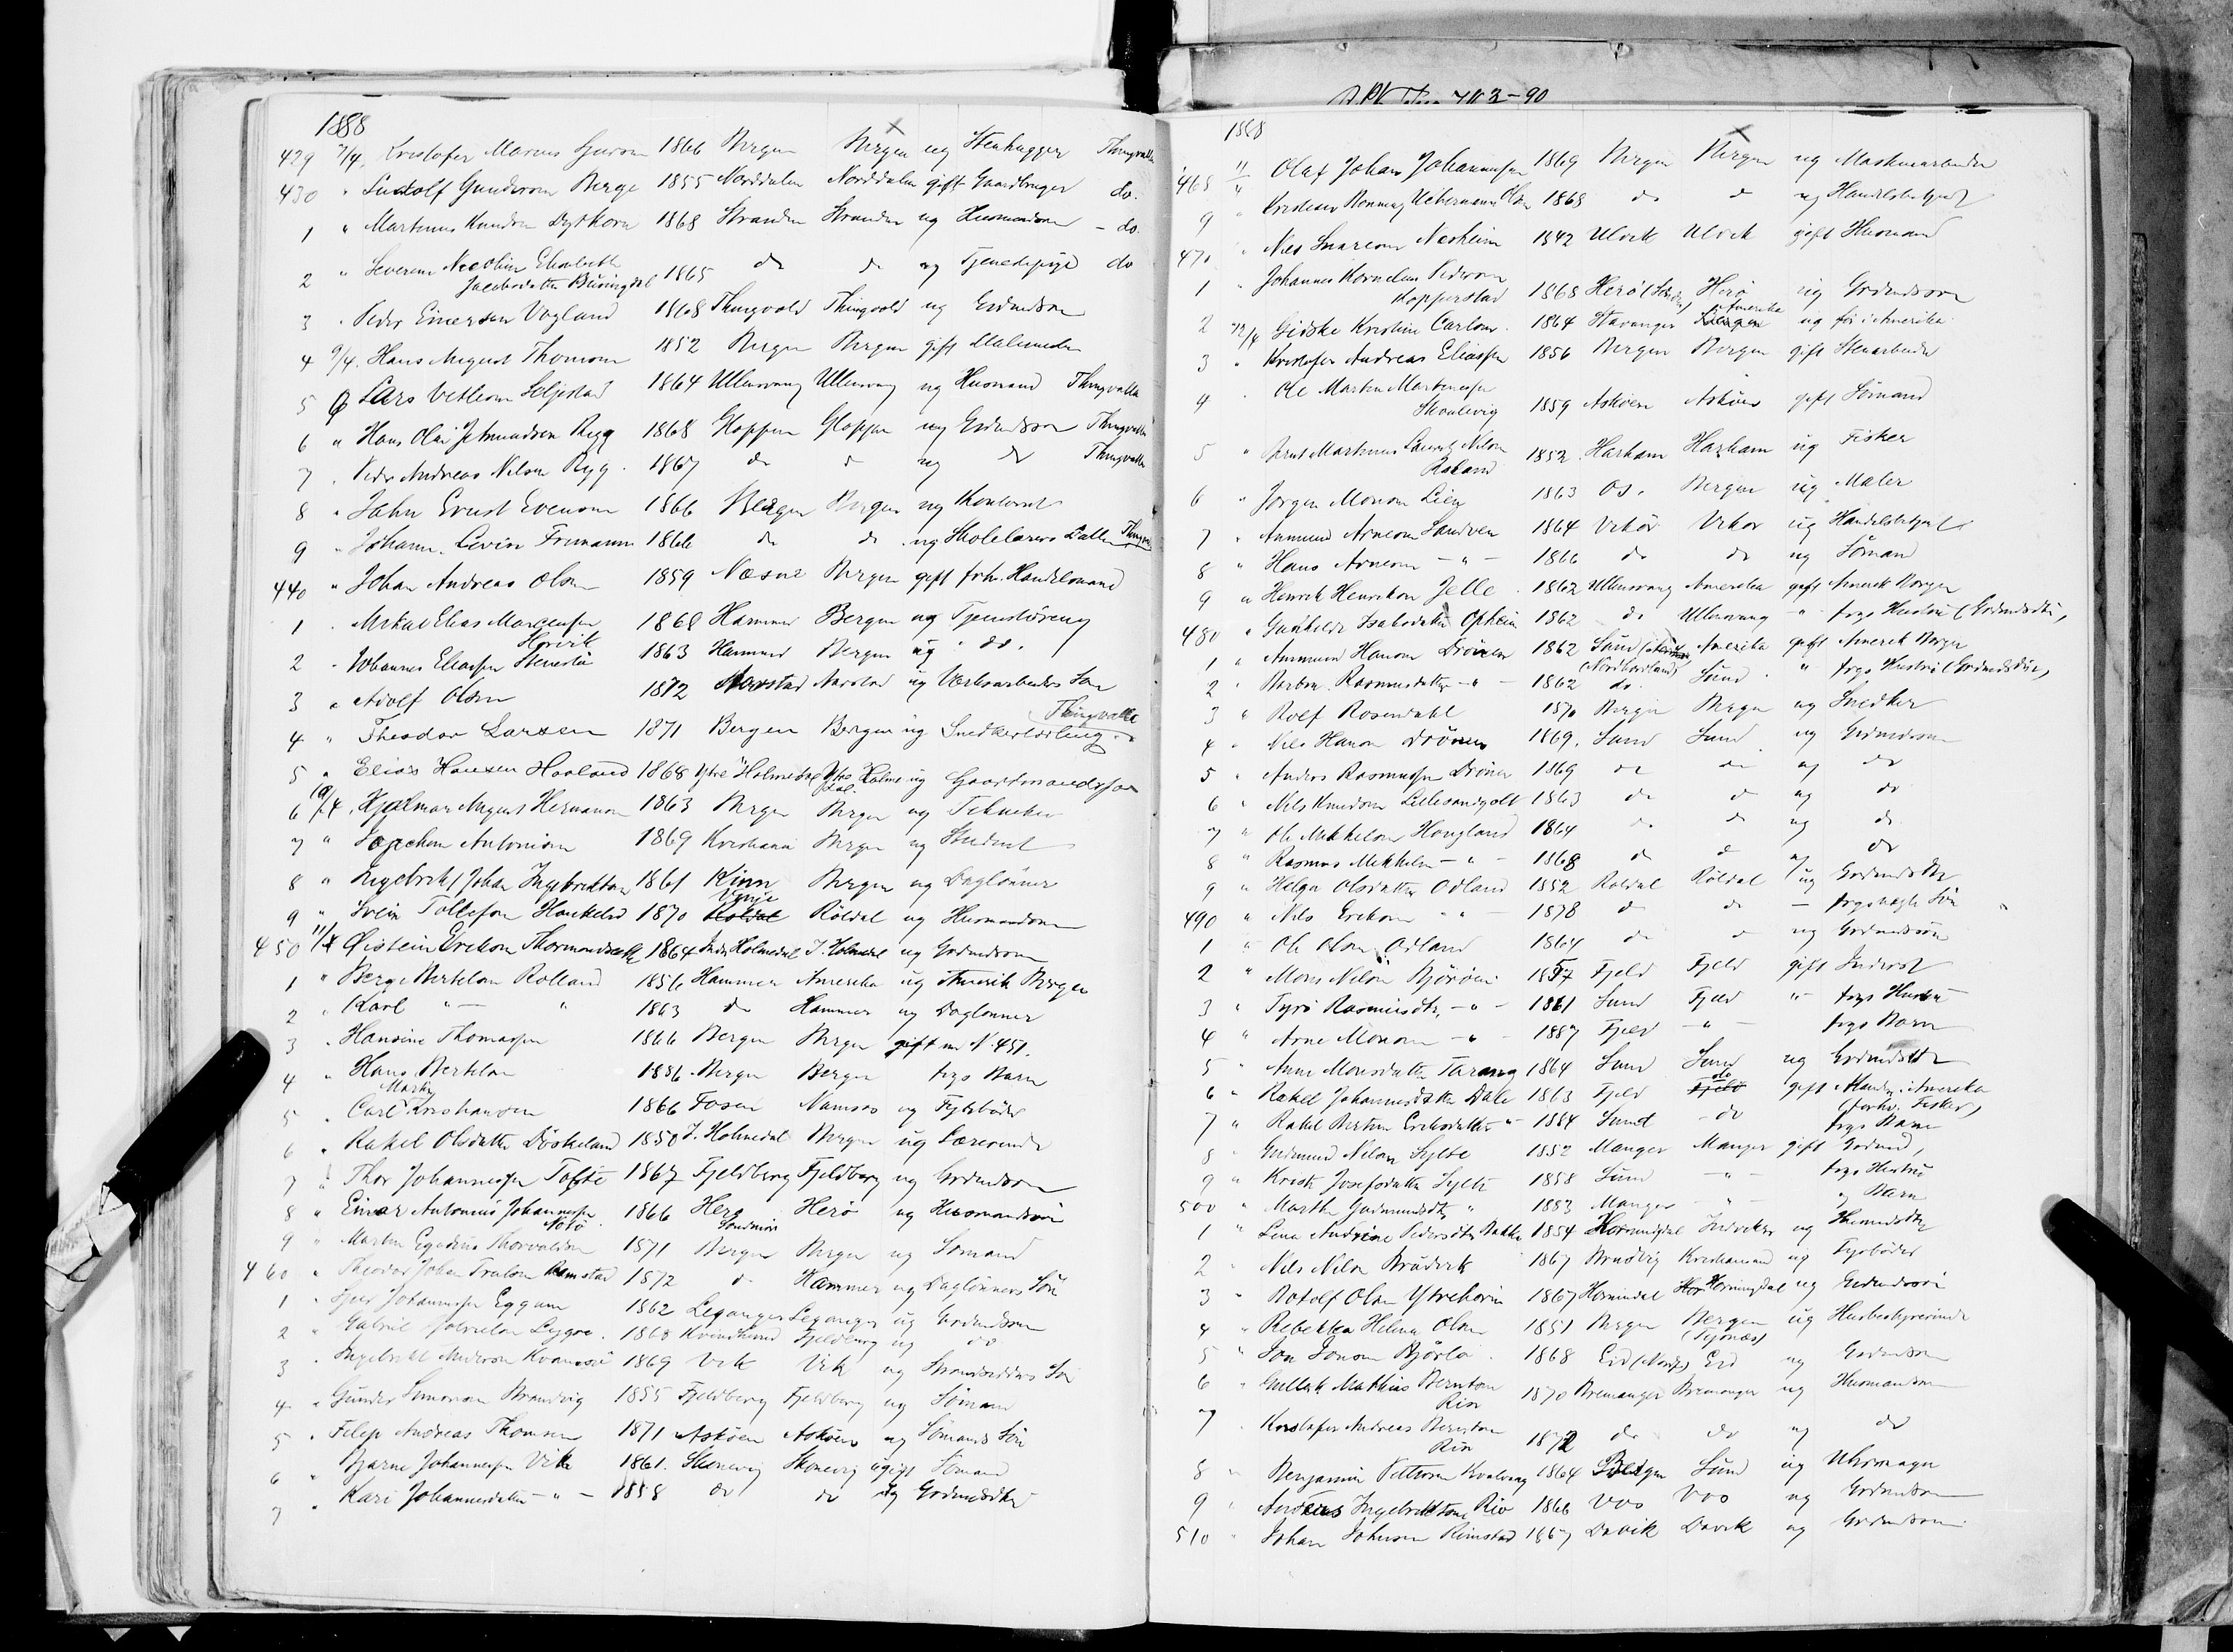 1888
429 7/4. Kristofer Marius 1866 Bergen Bergen ug Stenhugger Thingvalla
430 " Ludolf Gunderson Berge 1855 Norddalen Norddalen gift Gaardbruger do.
1 " Martinus Knudsen Dyrkorn 1868 Stranden Stranden ug Husmandssøn - do.
2 " Severine Nicoline Elisabeth
Jacobsdatter 1865 do do ug Tjenestepige do
3 " Peder Einersen Vogland 1868 Thingvold Thingvold ug Grdmdssøn
4 9/4. Hans August Thomsen 1852 Bergen Bergen gift
5 Lars Vetlesen Seljestad 1864 Ullensvang Ullensvang ug Husmand Thingvalla
6 " Hans Olai Rygg 1868 Gloppen Gloppen ug Grdmdssøn Thingvalla
7 " Peder Andreas Nilsen Ryg. 1867 do do ug do Thingvalla
8 " John Ernst Evensen 1866 Bergen Bergen ug Kontorist
9 " Johanne Levine Fremann 1866 do do ug Skolelærers Datter Thingvalla
440 " Johan Andreas Olsen 1859 Næsne Bergen gift frh. Handelsmand
1 " Mikal Elias
Horvik 1868 Hammer Bergen ug Tjenestdreng
2 " Johannes Eliassen 1863 Hammer Bergen ug do.
3 " Adolf Olsen 1872 Aarstad Aarstad ug Værksarbeiders Søn
Thingvalla
4 " Theodor Larsen 1871 Bergen Bergen ug Snedkerlærling
5 " Elias Hansen Haaland 1868 Ytre Holmedal Ytre Holmedal ug Gaardmandssøn
6 10/4. Hjalmar August Hermansen 1863 Bergen Bergen ug Tekniker
7 " Joachim Antonisen 1869 Kristiania Bergen ug Student
8 " Ingebrikt Johan Ingebriktsen 1861 Kinn Bergen ug Daglønner
Vinje
9 " Svein Tollefsen Haukelid 1870 Røldal Røldal ug Husmandssøn
450 11/4 Øistein Erikson 1864 Indre Holmedal I. Holmedal ug Grdmdssøn
1 " Berge Bertelsen Rolland 1856 Hammer Amerika ug Amerik Borger
2 " Karl " — " 1863 do Hammer ug Daglønner
3 " Hansine Thomassen 1866 Bergen Bergen gift m N. 451.
4 " Hans Bertelsen 1886 Bergen Bergen frgs Barn
Martin
5 " Carl Kristiansen 1866 Fosen Namsos ug Fyrbøder
6 " Rakel Olsdatter Døskeland 1850 I. Holmedal Bergen ug Lærerinde
7 " Thor Johannessen Tofte 1867 Fjeldberg Fjeldberg ug Grdmdssøn
8 " Einar Antonius Johannessen
1866 Herø Søndmør Herø ug Husmandssøn
9 " Martin Thorvaldsen 1871 Bergen Bergen ug Sømand
460 " Theodor Johan 1872 do Hammer ug Daglønners Søn
1 " Johannessen Eggum 1862 Leganger Leganger ug Grdmdssøn
2 " Gabriel 1868 Kvindherred Fjeldberg ug do
3 " Ingebrikt Andersen 1869 Vik Vik ug Strandsidders Søn
4 " Gunder 1855 Fjeldberg Fjeldberg ug Sømand
5 " Filip Andreas Thomsen 1871 Askøen Askøen ug Sømands Søn
6 " Bjarne Johannessen Vik 1861. Skonevig Skonevig ugift Sømand
7 " Kari Johannesdatter - " - 1858 do do ug Grdmdsdtr
1888
468 11/4 Olaf Johan Johannessen 1869 Bergen Bergen ug Maskinarbeider
9 " Olsen 1868 do do ug Handelsbetjent
470 " Nils Snareson Nesheim 1842 Ulvik Ulvik gift Husmand
1 " Johannes Kornelius Pedersen
Kopperstad 1868 Herø Herø ug Grdmdssøn
Amerika
2 12/4 Gidske Kristine Carlsen. 1864 Stavanger Bergen ug før i Amerika
3 " Kristofer Andreas Eliassen 1856 Bergen Bergen gift Stenarbeider
4 " Ole Martin Martinussen
Skaalevig 1859 Askøen Askøen gift Sømand
5 " Arnt Martinus Lauritz Nilsen
1852 Harham Harham ug Fisker
6 " Jørgen Monsen Lien 1863 Os. Bergen ug Maler
7 " Anmund Arneson Sandven 1864 Vikør Vikør ug Handelsbetjent
8 " Hans Arneson - " - 1866 do do ug Sømand
9 " Henrik Henrikson Jelle 1862 Ullensvang Amerika gift Amerik Borger
480 " Gunhilde Isaksdatter Opheim 1862 do Ullensvang " frgs Hustru (Grdmdsdtr)
1 " Ammund Hanson Drønen 1862 Sund (Nordhordland) Amerika gift Amerik Borger
2 " Rasmusdatter - " - 1862 do. Sund " frgs Hustru (Grdmdsdtr)
3 " Rolf Rosendahl 1870 Bergen Bergen ug Snedker
4 " Nils Hanson Drønen 1869. Sund Sund ug Grdmdssøn
5 " Anders Rasmussen Drønen 1869 do do ug do
6 " Nils Knudsen Lillesandgolt 1863 do do ug do
7 " Ole Mikkelsen Hougland 1864 do do ug do
8 " Rasmus Mikkelsen - " - 1868 do do ug do
9 " Helga Olsdatter Odland 1852 Røldal Røldal ug Grdmdsdtr
490 " Nils Erikson " 1878 do do - frgs Søn
1 " Ole Olsen Odland 1864 do do ug Grdmdssøn
2 " Mons Nilson Bjørøen 1857 Fjeld Fjeld gift Inderst
3 " Rasmusdtr. - " - 1861 Sund Fjeld " frgs Hustru
4 " Arne Monsen - " - 1887 Fjeld - " - frgs Barn
5 " Anne Monsdatter Tarang 1864 Sund Sund ug Grdmdsdtr
6 " Rakel Johannesdatter Dale 1863 Fjeld do gift Manden i Amerika
(forhv. Fisker)
7 " Rakel Eriksdatter " 1884 Sund do frgs Barn
8 " Gudmund Nilsen Sylte 1852 Manger Manger gift Grdmand,
9 " Kristi Josefsdatter Sylte 1858 Sund - " - frgs Hustru
500 " Marthe Gudmundsdtr " 1883 Manger - " - " Barn
1 " Lina Andrine Pedersdtr Bakke 1854 Hornindal ug Husmdsdtr
2 " Nils Nilsen 1867 Kristiansund ug Fyrbøder
3 " Rotolf Olsen Ytrehorn 1867 Hornindal Horningdal ug Grdmdssøn
4 " Rebekka Helene Olsen 1851 Bergen Bergen ug Husbestyrerinde
5 " Jon Jonsen 1868 Eid (Nordfj) Eid ug Grdmdssøn
6 " Mathias Berntsen
1870 Bremanger Bremanger ug Husmandssøn
7 " Kristofer Andreas Berntsen
1872 do do ug do
8 " Benjamin Kvalvaag 1864 Bergen Sund ug Uhrmager
9 " Andreas Ingebriktson 1866 Vos Vos ug Grdmdssøn
510 " Johan Johnsen Rimstad 1867 Davik Davik ug Grdmdssøn